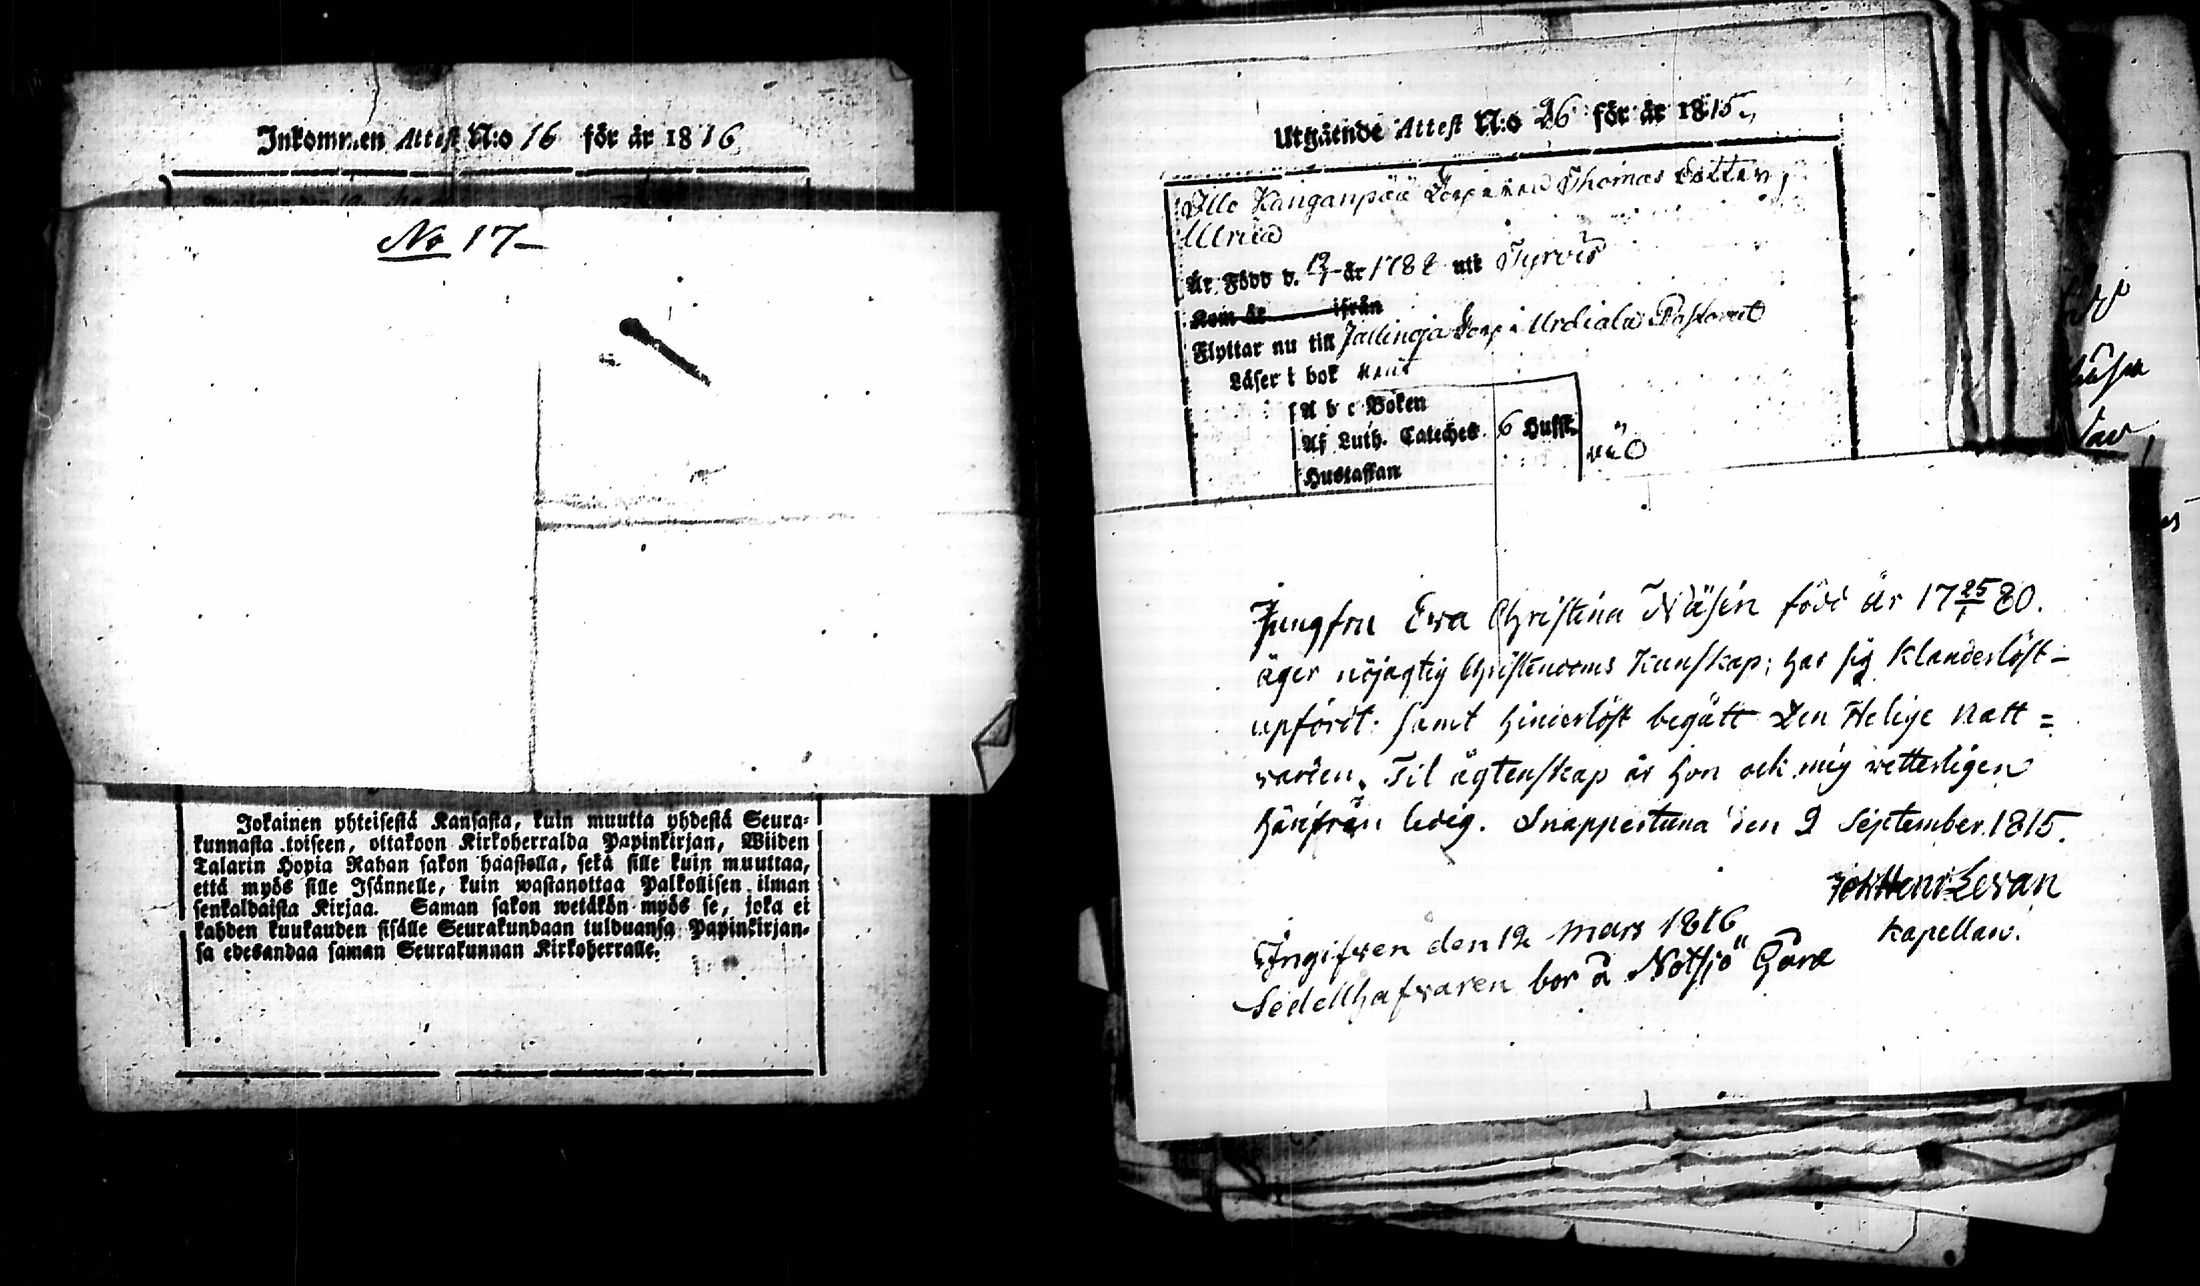 Inkommen Attest N:o 16 för år 1816
No 17
Jokainen yhteisestä Kansasta, kuin muutta yhdestä Seura-
kunnasta toiseen, ottakoon Kirkoherralda Papinkirjan, Wiiden
Talarin Hopia Rahan sakon haastolla, sekä sille kuin muuttaa,
että myös sille Isännelle, kuin wastanottaa Palkollisen ilman
senkaldaista Kirjaa. Saman sakon wetäkön myös se, joka ei
kahden kuukauden sisälle Seurakundaan tulduansa Papinkirjan-
sa edesandaa saman Seurakunnan Kirkoherralle.
Utgående Attest N:o 26 för år 1815
Kanganpää Thomas Dotter
Ulrica
Är Född d. år 1788 uti Tyrvis
Kom år ifrån
Flyttar nu till i Urdiala Pastorat
Läser i bok
A b c Boken
Af Luth. Cateches 6 Hufst.
Hustaflan
Jungfru Ewa Christina Näsén född är 17 25/1 80.
äger nöjagtig Christendoms Kunskap; har sig klanderlöst
upfördt: samt hinderlöst begått Den Helige Natt=
varden. Til ägtenskap är hon ock mig vetterligen
härifrån ledig. Snappertuna den 9 September 1815.
Joh Henr Levan
Kapellan.
Ingifven den 12 Mars 1816
Sedellhafvaren bor å Notsjö Gård